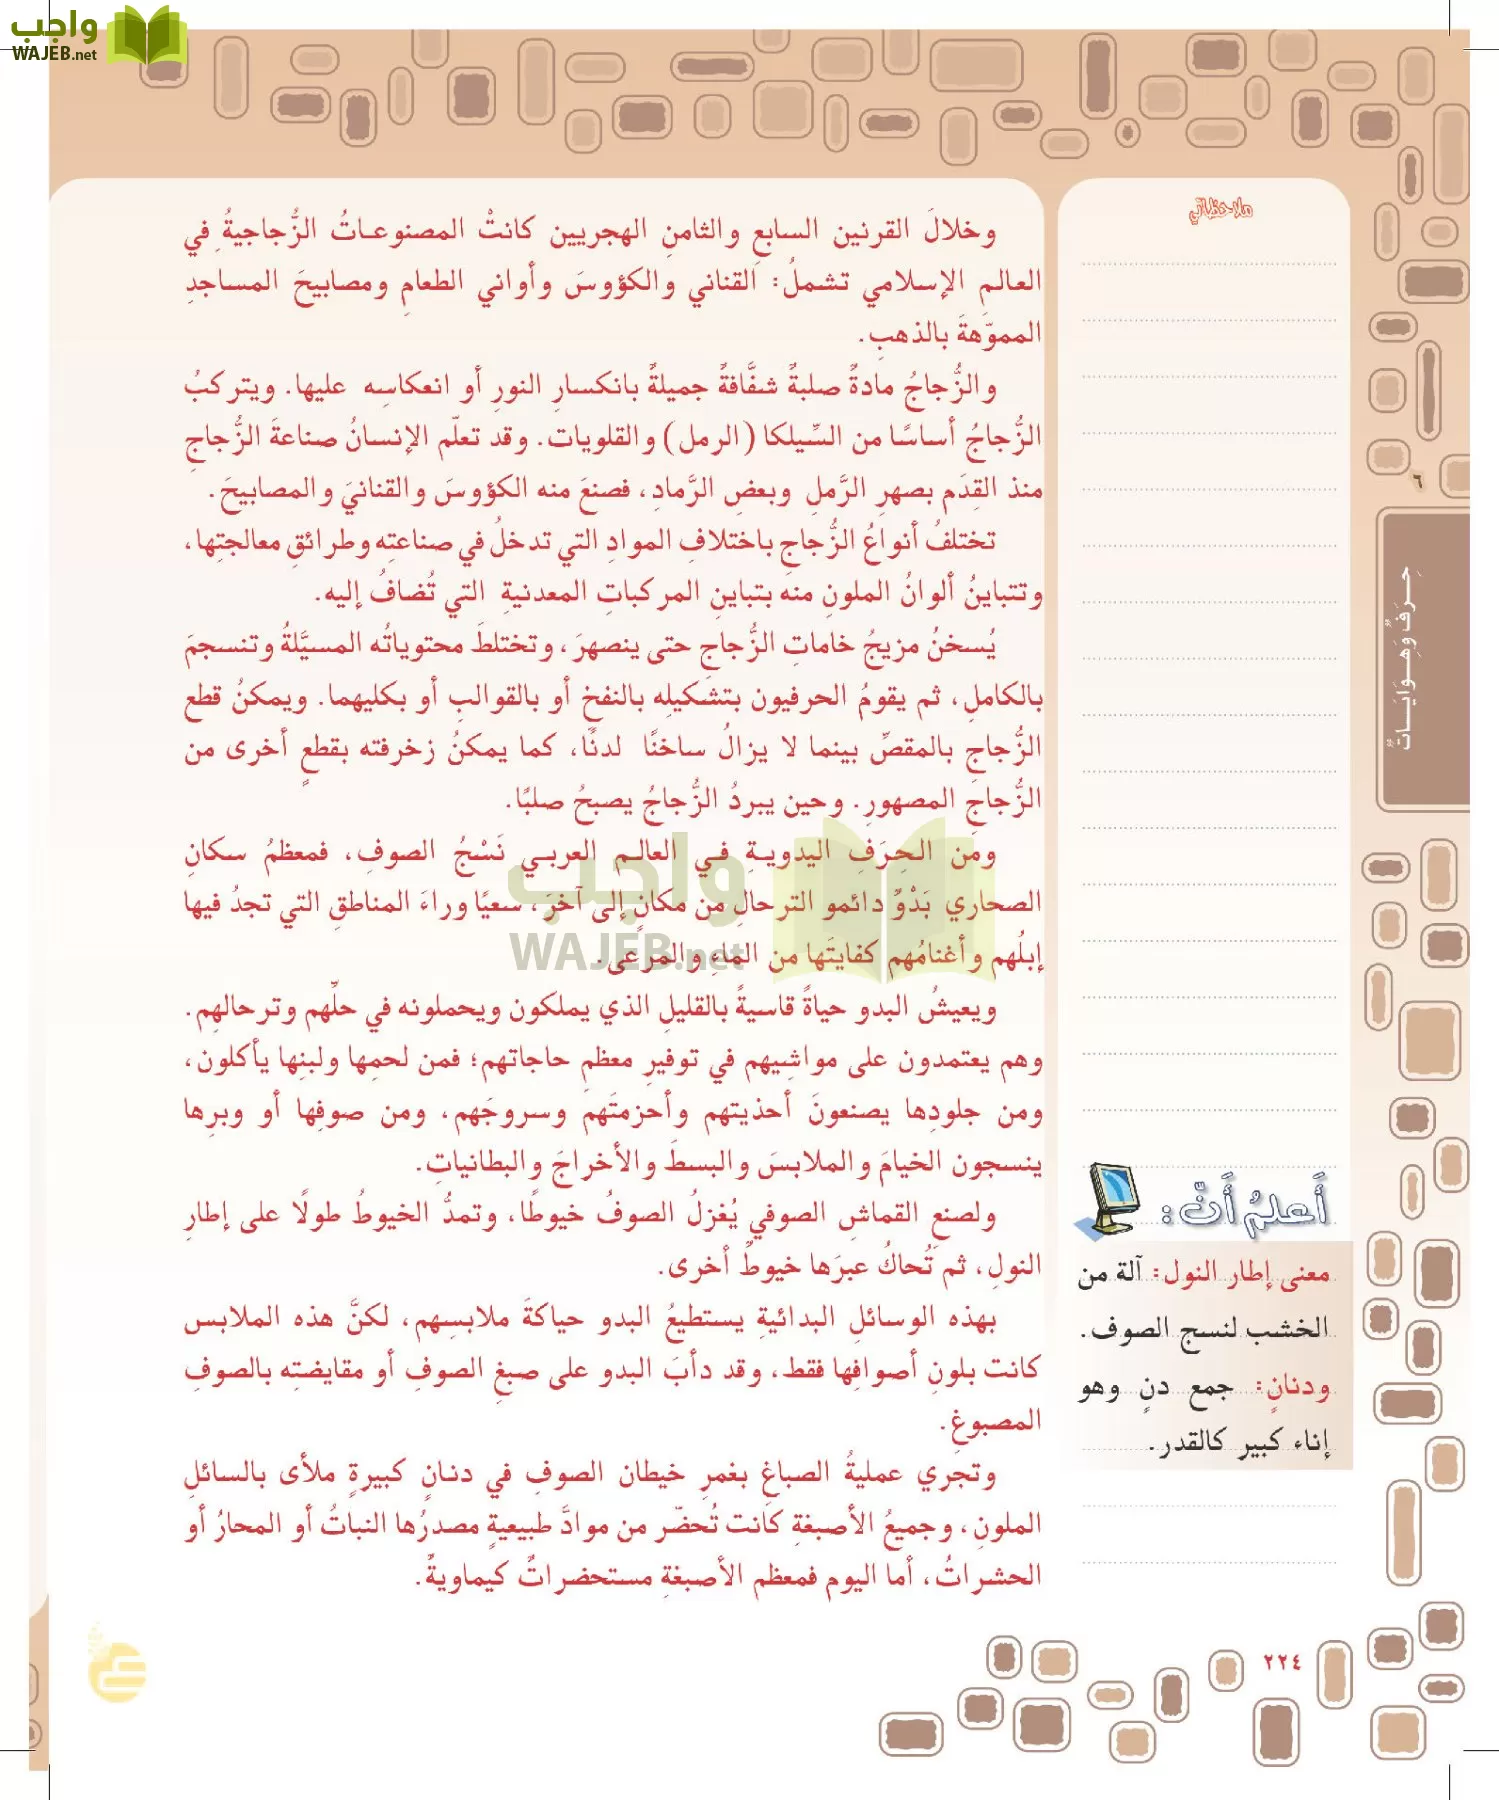 واجب
WAJEB.net
وخلالَ القرنين السابعِ والثامنِ الهجريين كانتْ المصنوعاتُ الزُّجاجيةُ في
العالمِ الإسلامي تشملُ: القناني والكؤوسَ وأواني الطعامِ ومصابيحَ المساجدِ
المموّهةَ بالذهبِ.
والزُّجاجُ مادةٌ صلبةٌ شفَّافةٌ جميلةٌ بانكسارِ النورِ أو انعكاسِه عليها. ويتركبُ
الزُّجاجُ أساسًا من السِّيلكا (الرمل) والقلويات. وقد تعلّم الإنسانُ صناعةَ الزُّجاجِ
منذ القِدَم بصهرِ الرَّملِ وبعضِ الرَّمادِ، فصنعَ منه الكؤوسَ والقنانيَ والمصابيحَ.
تختلفُ أنواعُ الزُّجاجِ باختلافِ الموادِ التي تدخلُ في صناعتِه وطرائقِ معالجتِها،
وتتباينُ ألوانُ الملونِ منه بتباينِ المركباتِ المعدنيةِ التي تُضافُ إليه.
يُسخنُ مزيجُ خاماتِ الزُّجاجِ حتى ينصهرَ، وتختلطَ محتوياتُه المسيَّلةُ وتنسجمَ
بالكاملِ، ثم يقومُ الحرفيون بتشكيلِه بالنفخِ أو بالقوالبِ أو بكليهما. ويمكنُ قطع
الزُّجاجِ بالمقصِّ بينما لا يزالُ ساخنًا لدنًا، كما يمكنُ زخرفته بقطعٍ أخرى من
الزُّجاجِ المصهورِ. وحين يبردُ الزُّجاجُ يصبحُ صلبًا.
ومن الحِرَفِ اليدويةِ في العالم العربي نَسْجُ الصوفِ، فمعظمُ سكانِ
الصحاري بَدْوٌ دائمو الترحالِ من مكانٍ إلى آخرَ، سعيًا وراءَ المناطقِ التي تجدُ فيها
إبلُهم وأغنامُهم كفايتَها من الماءِ والمرعَى.
ويعيشُ البدو حياةً قاسيةً بالقليلِ الذي يملكون ويحملونه في حلّهم وترحالهِم.
وهم يعتمدون على مواشِيهم في توفيرِ معظم حاجاتهم؛ فمن لحمِها ولبنِها يأكلون،
ومن جلودِها يصنعونَ أحذيتهم وأحزمتَهم وسروجَهم، ومن صوفِها أو وبرِها
ينسجون الخيامَ والملابسَ والبسطَ والأخراجَ والبطانياتِ.
ولصنعِ القماشِ الصوفي يُغزلُ الصوفُ خيوطًا، وتمدُّ الخيوطُ طولًا على إطارِ
النولِ، ثم تُحاكُ عبرَها خيوطٌ أخرى.
بهذه الوسائلِ البدائيةِ يستطيعُ البدو حياكةَ ملابسِهم، لكنَّ هذه الملابس
كانت بلونِ أصوافِها فقط، وقد دأبَ البدو على صبغِ الصوفِ أو مقايضتِه بالصوفِ
المصبوغِ.
وتجري عمليةُ الصباغِ بغمرِ خيطان الصوفِ في دنانٍ كبيرةٍ ملأى بالسائلِ
الملونِ، وجميعُ الأصبغةِ كانت تُحضّر من موادَّ طبيعيةٍ مصدرُها النباتُ أو المحارُ أو
الحشراتُ، أما اليوم فمعظم الأصبغةِ مستحضراتٌ كيماويةٌ.
ملاحظاتي
أَعلمُ أَنّ:
معنى إطار النول: آلة من
الخشب لنسج الصوف.
ودنانٍ: جمع دنٍ وهو
إناء كبير كالقدر.
٦
حِرَفٌ وَهِوَايَاتٌ
واجب
WAJEB.net
٢٢٤